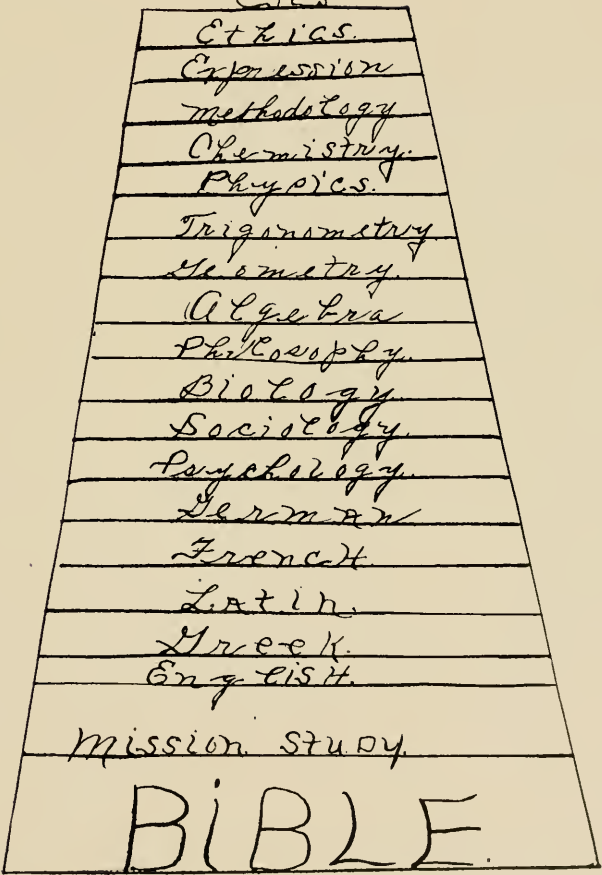 Ethics.
Expression
methodology
Chemistry.
Physics.
Trigonometry
Geometry.
Algebra
Philosophy.
Biology.
Sociology.
Psychology.
German
French.
Latin.
Greek.
English.
Mission Study.
BiBLE.